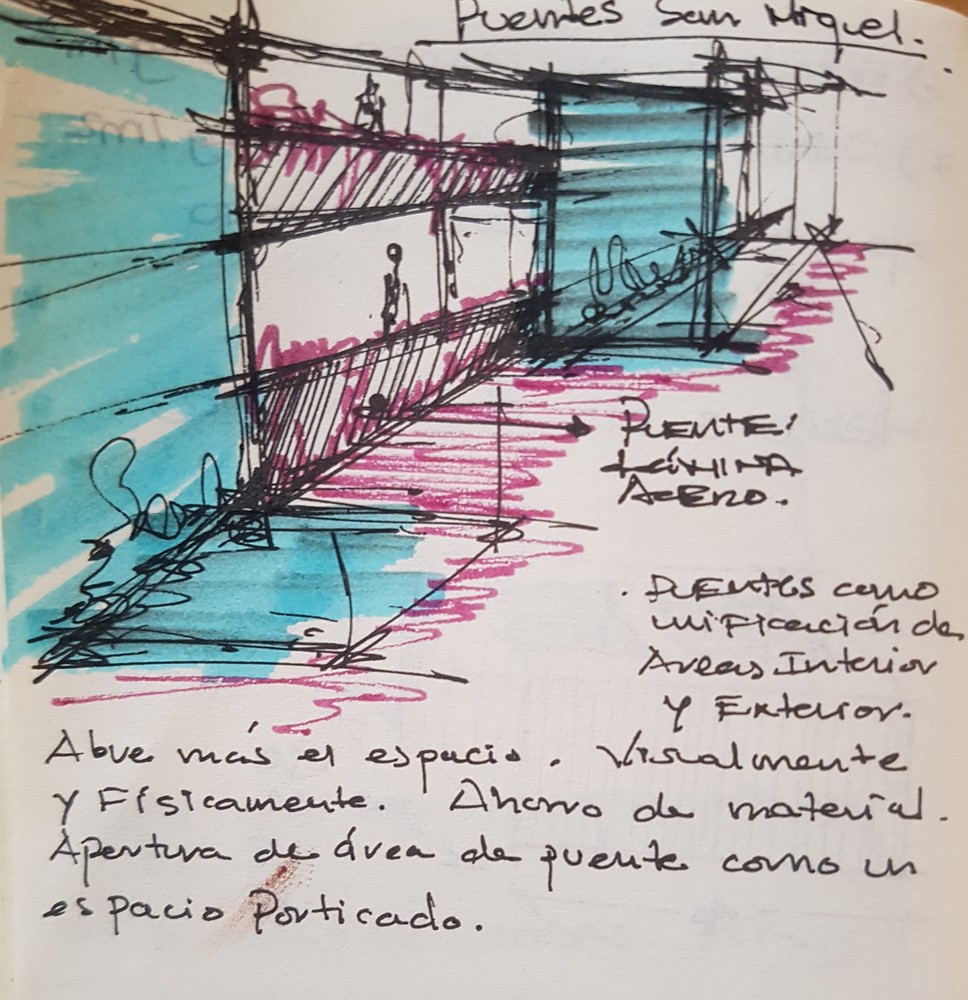 Puentes San Miguel.
PUENTE:
LÁMINA
ACERO.
. PUENTES como
unificación de
Areas Interior
y Exterior.
Abre más el espacio. Visualmente
y Físicamente. Ahorro de material.
Apertura de área de puente como un
espacio Porticado.